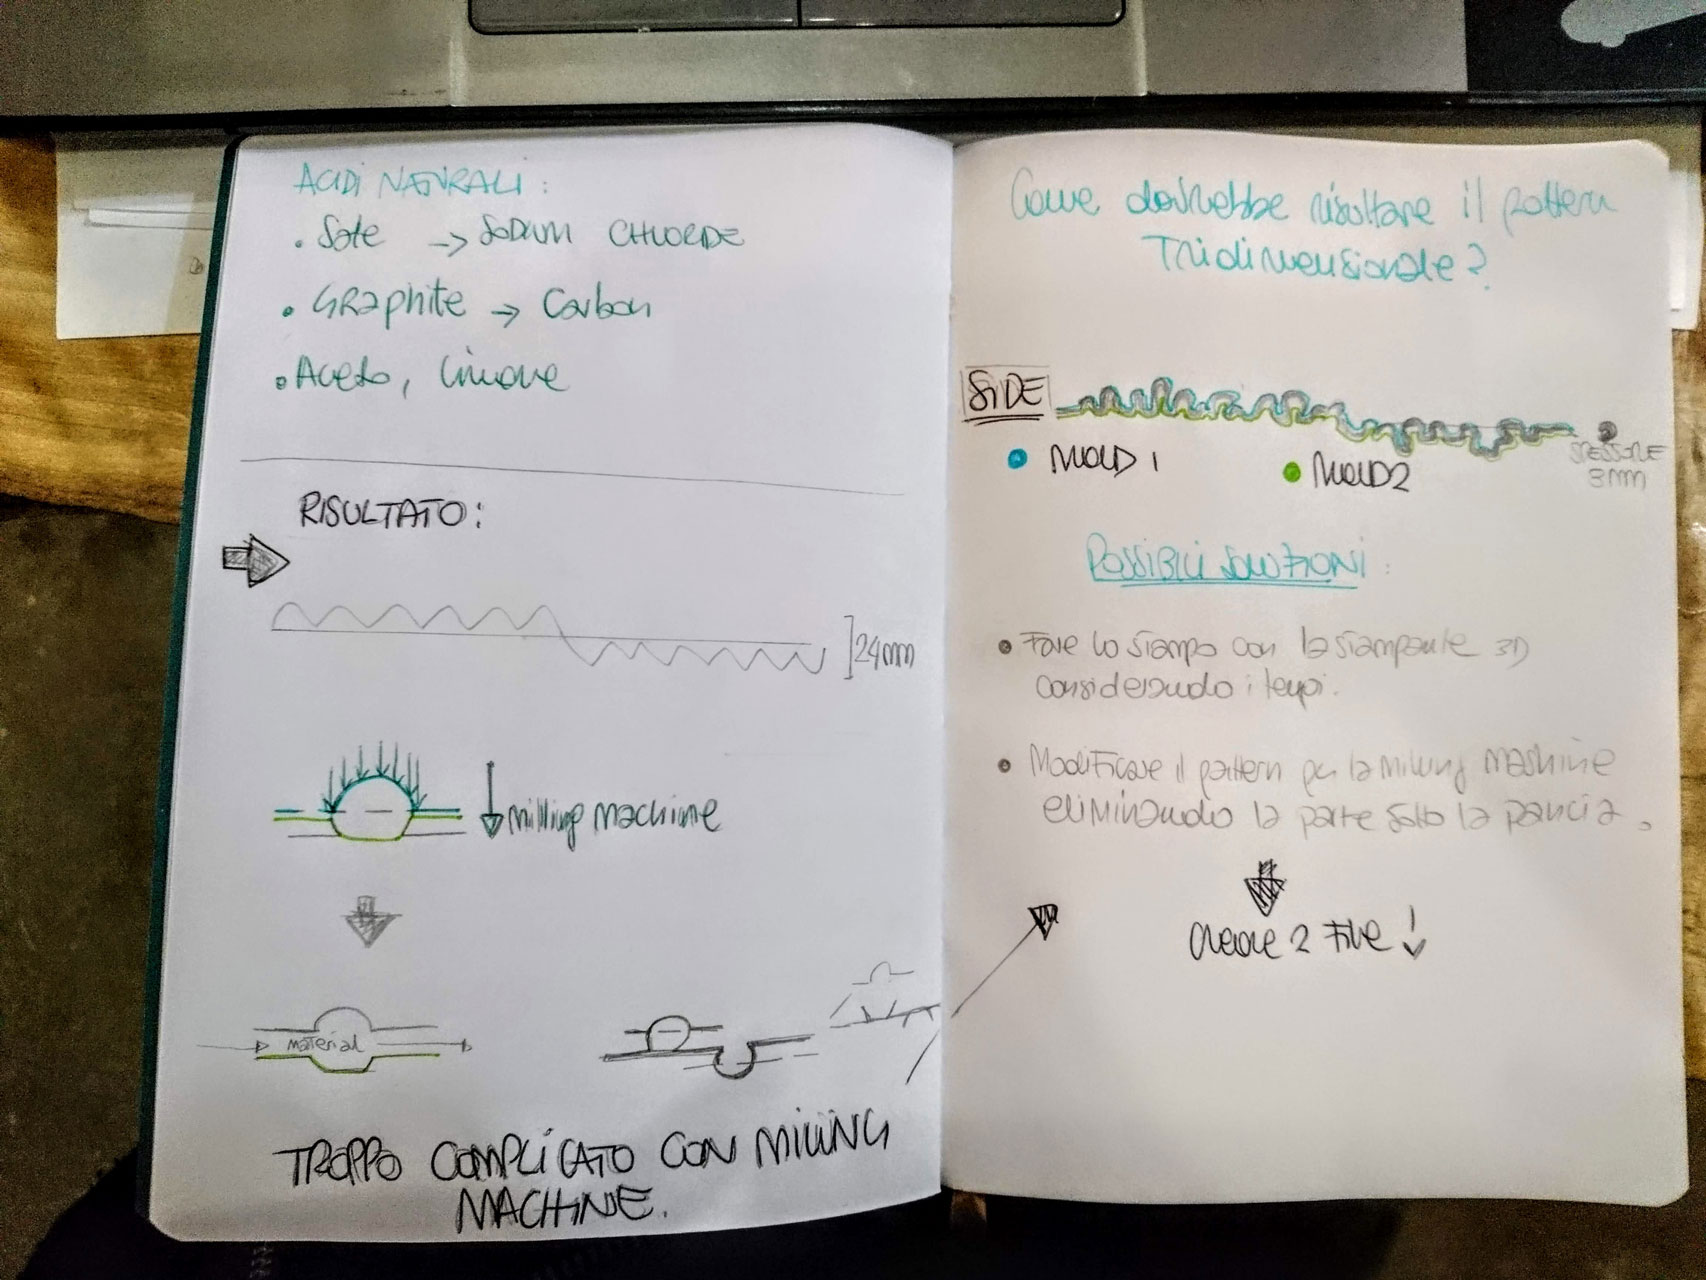 ACIDI NATURALI :
• Sale -> SODIUM CHLORIDE
• GRaphite -> Carbon
• Aceto, Limone
RISULTATO:
24mm
milling machine
material
TROPPO COMPLICATO CON MILLING
MACHINE.
Come dovrebbe risultare il pattern
Tridimensionale?
SIDE
MOLD 1
MOLD 2
SPESSORE
3mm
POSSIBILI SOLUZIONI :
• Fare lo stampo con la stampante 3D
considerando i tempi.
• Modificare il pattern per la Milling Mashine
eliminando la parte sotto la pancia.
Creare 2 File